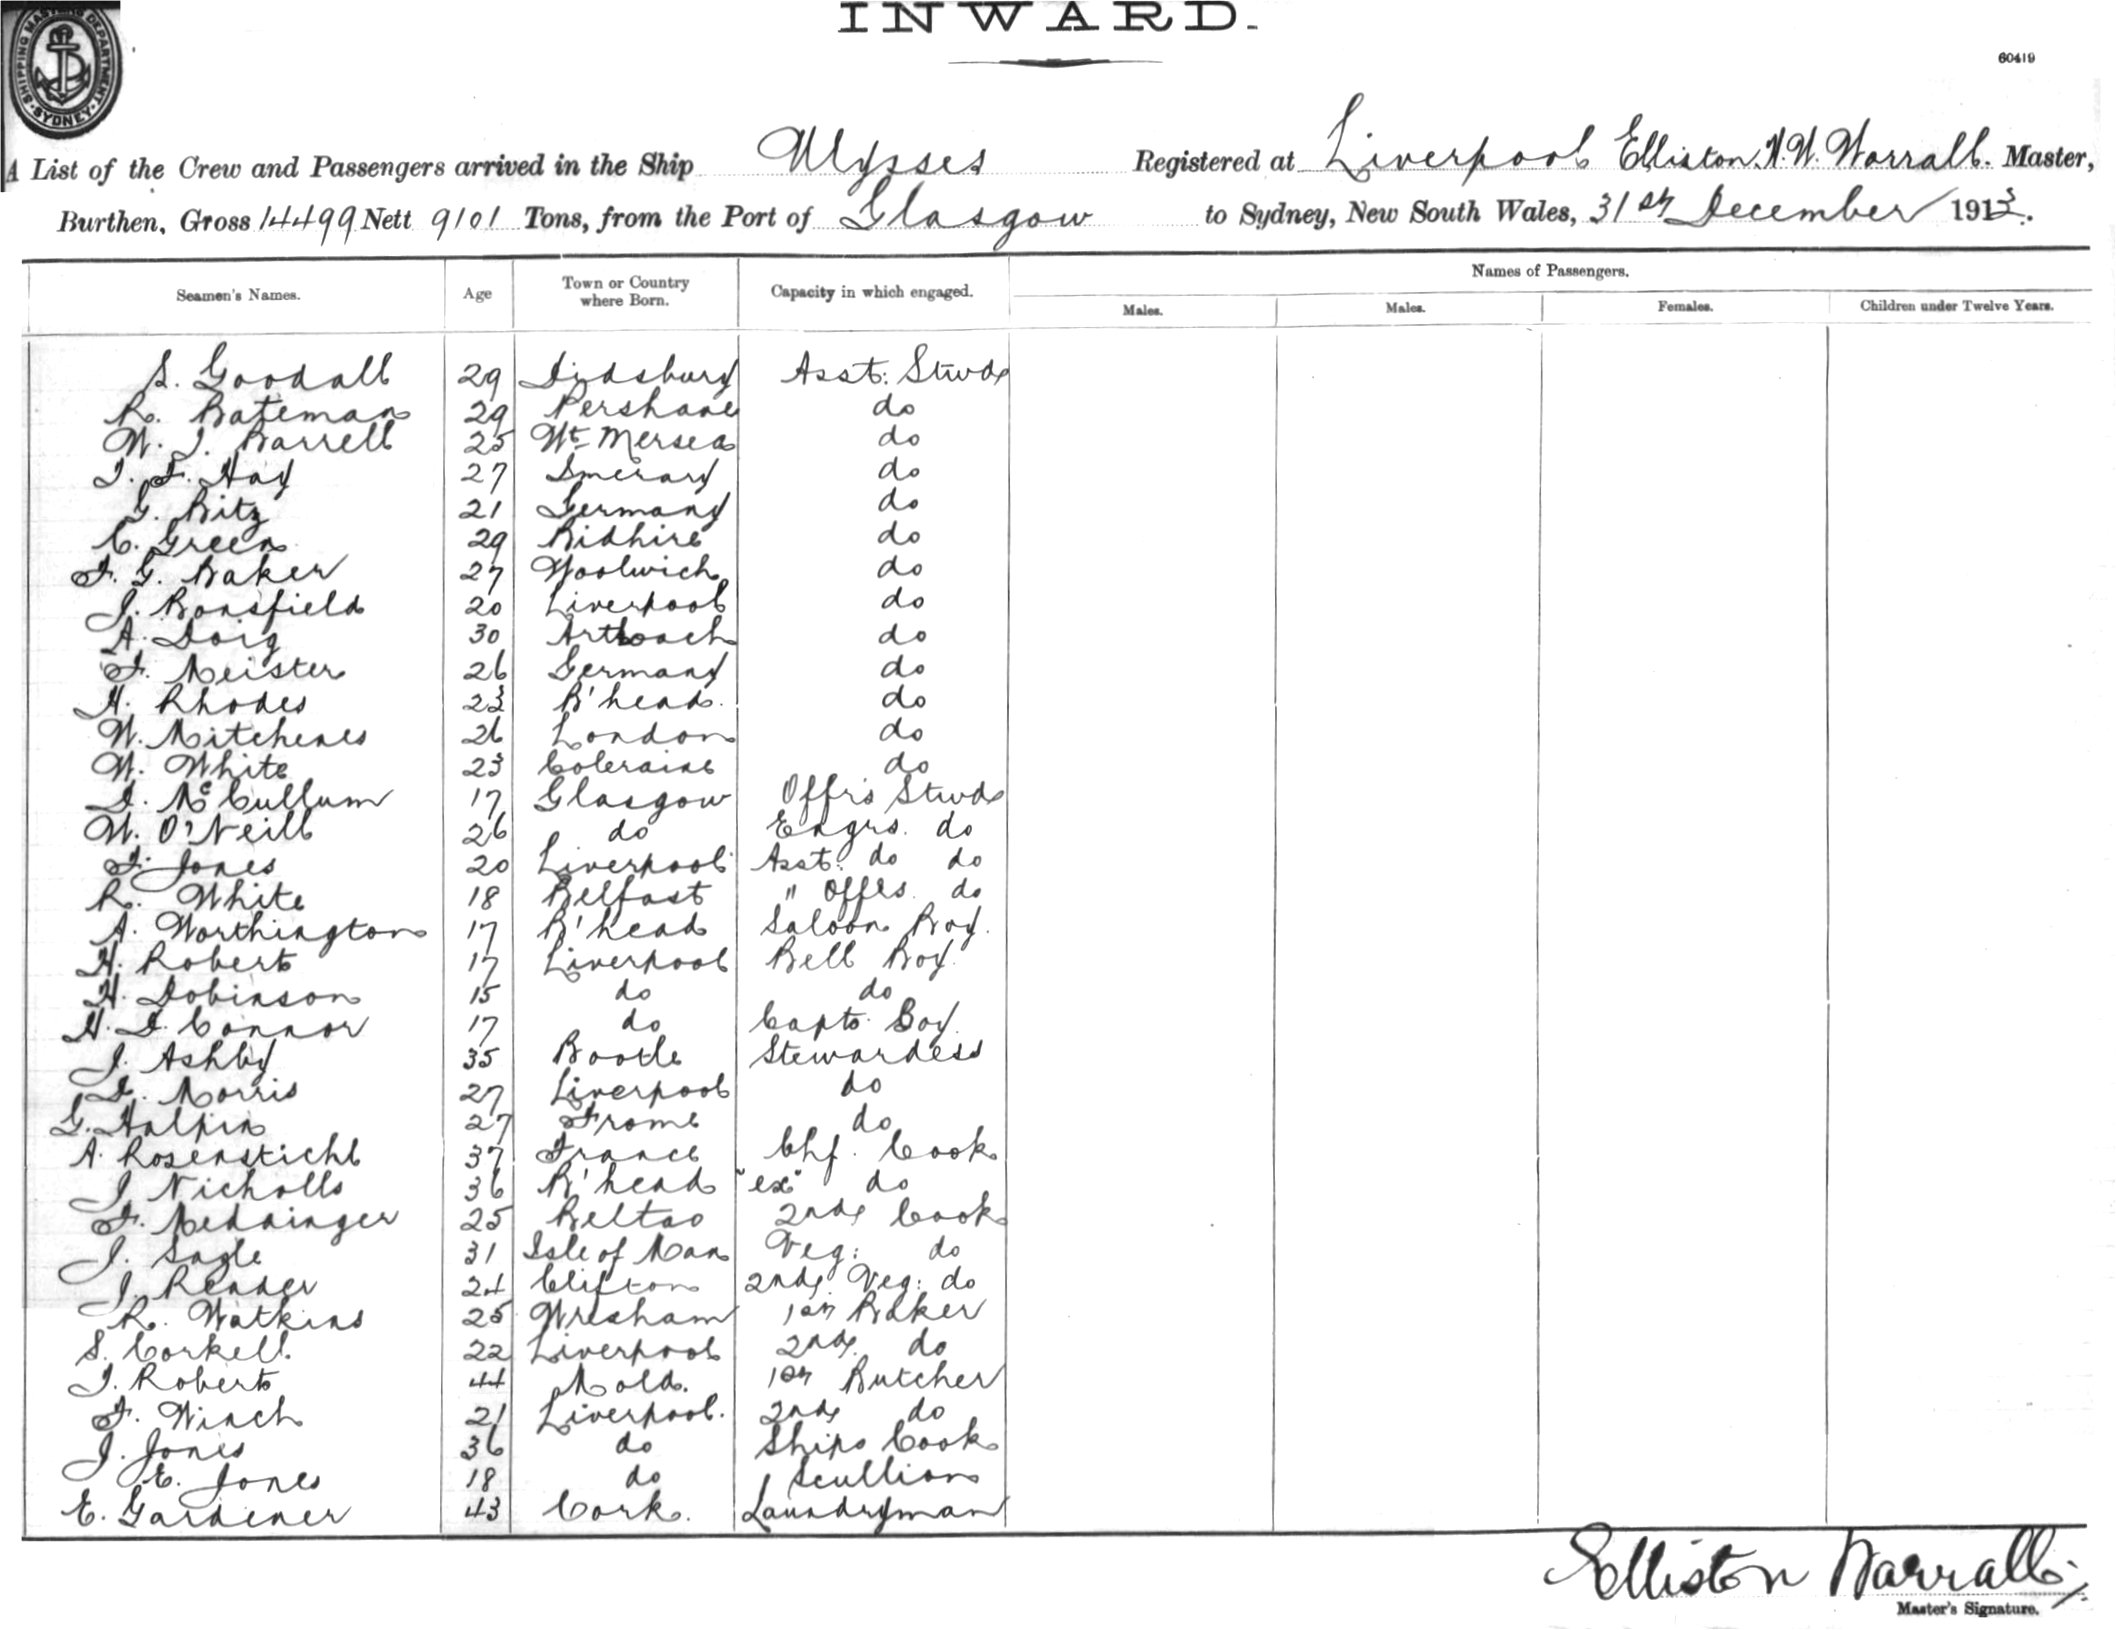 INWARD.
60419
SHIPPING MASTERS DEPARTMENT SYDNEY
A List of the Crew and Passengers arrived in the Ship Ulysses Registered at Liverpool Elliston H. W. Worrall. Master,
Burthen, Gross 14499 Nett 9101 Tons, from the Port of Glasgow to Sydney, New South Wales, 31st December 1913.
Names of Passengers.
Seamen's Names. Age Town or Country where Born. Capacity in which engaged. Males. Males. Females. Children under Twelve Years.
S. Goodall 29 Didsbury Asst. Stwd
R. Bateman 29 Pershore do
W. J. Barrell 25 Wt Mersea do
J. F. Hay 27 do
G. Ritz 21 Germany do
C. Green 29 do
F. G. Baker 27 Woolwich do
J. Bonsfield 20 Liverpool do
A. Doig 30 do
F. Meister 26 Germany do
H. Rhodes 23 B'head. do
W. Mitchener 26 London do
W. White 23 Coleraine do
D. McCullum 17 Glasgow Offrs Stwd
W. O'Neill 26 do Engrs. do
F. Jones 20 Liverpool Asst. do do
R. White 18 Belfast " Offrs. do
A. Worthington 17 B'head Saloon Boy.
H. Roberts 17 Liverpool Bell Boy.
H. Dobinson 15 do do
H. D. Connor 17 do Capts. Boy.
J. Ashby 35 Bootle Stewardess
D. Morris 27 Liverpool do
G. Halpin 27 Frome do
A. Rosenstiehl 37 France Chf. Cook
J. Nicholls 36 B'head "ex" do
F. Medainger 25 2nd Cook
J. Sagle 31 Isle of Man Veg: do
J. Render 24 Clifton 2nd Veg: do
R. Watkins 25 Wrexham 1st Baker
S. Corkell. 22 Liverpool 2nd. do
J. Roberts 44 Mold. 1st Butcher
F. Winch 21 Liverpool. 2nd do
J. Jones 36 do Ships Cook
E. Jones 18 do Scullion
E. Gardener 43 Cork. Laundryman
Elliston Worrall
Master's Signature.